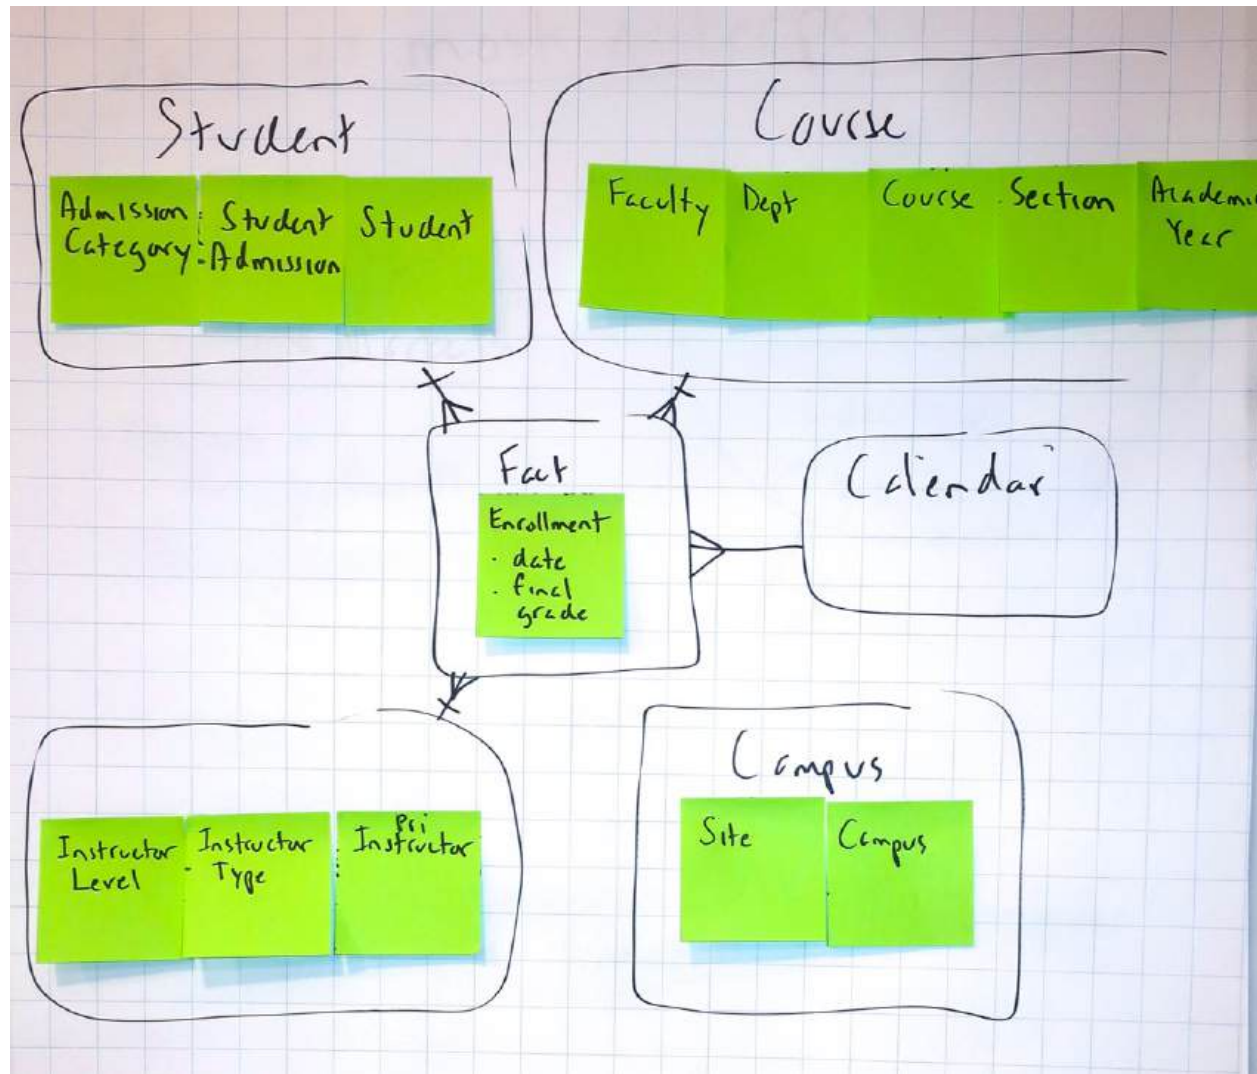 Student
Admission
Category
Student
Admission
Student
Course
Faculty
Dept
Course
Section
Academi
Year
Fact
Enrollment
. date
. final
grade
Calendar
Instructor
Level
Instructor
Type
Pri
Instructor
Campus
Site
Campus